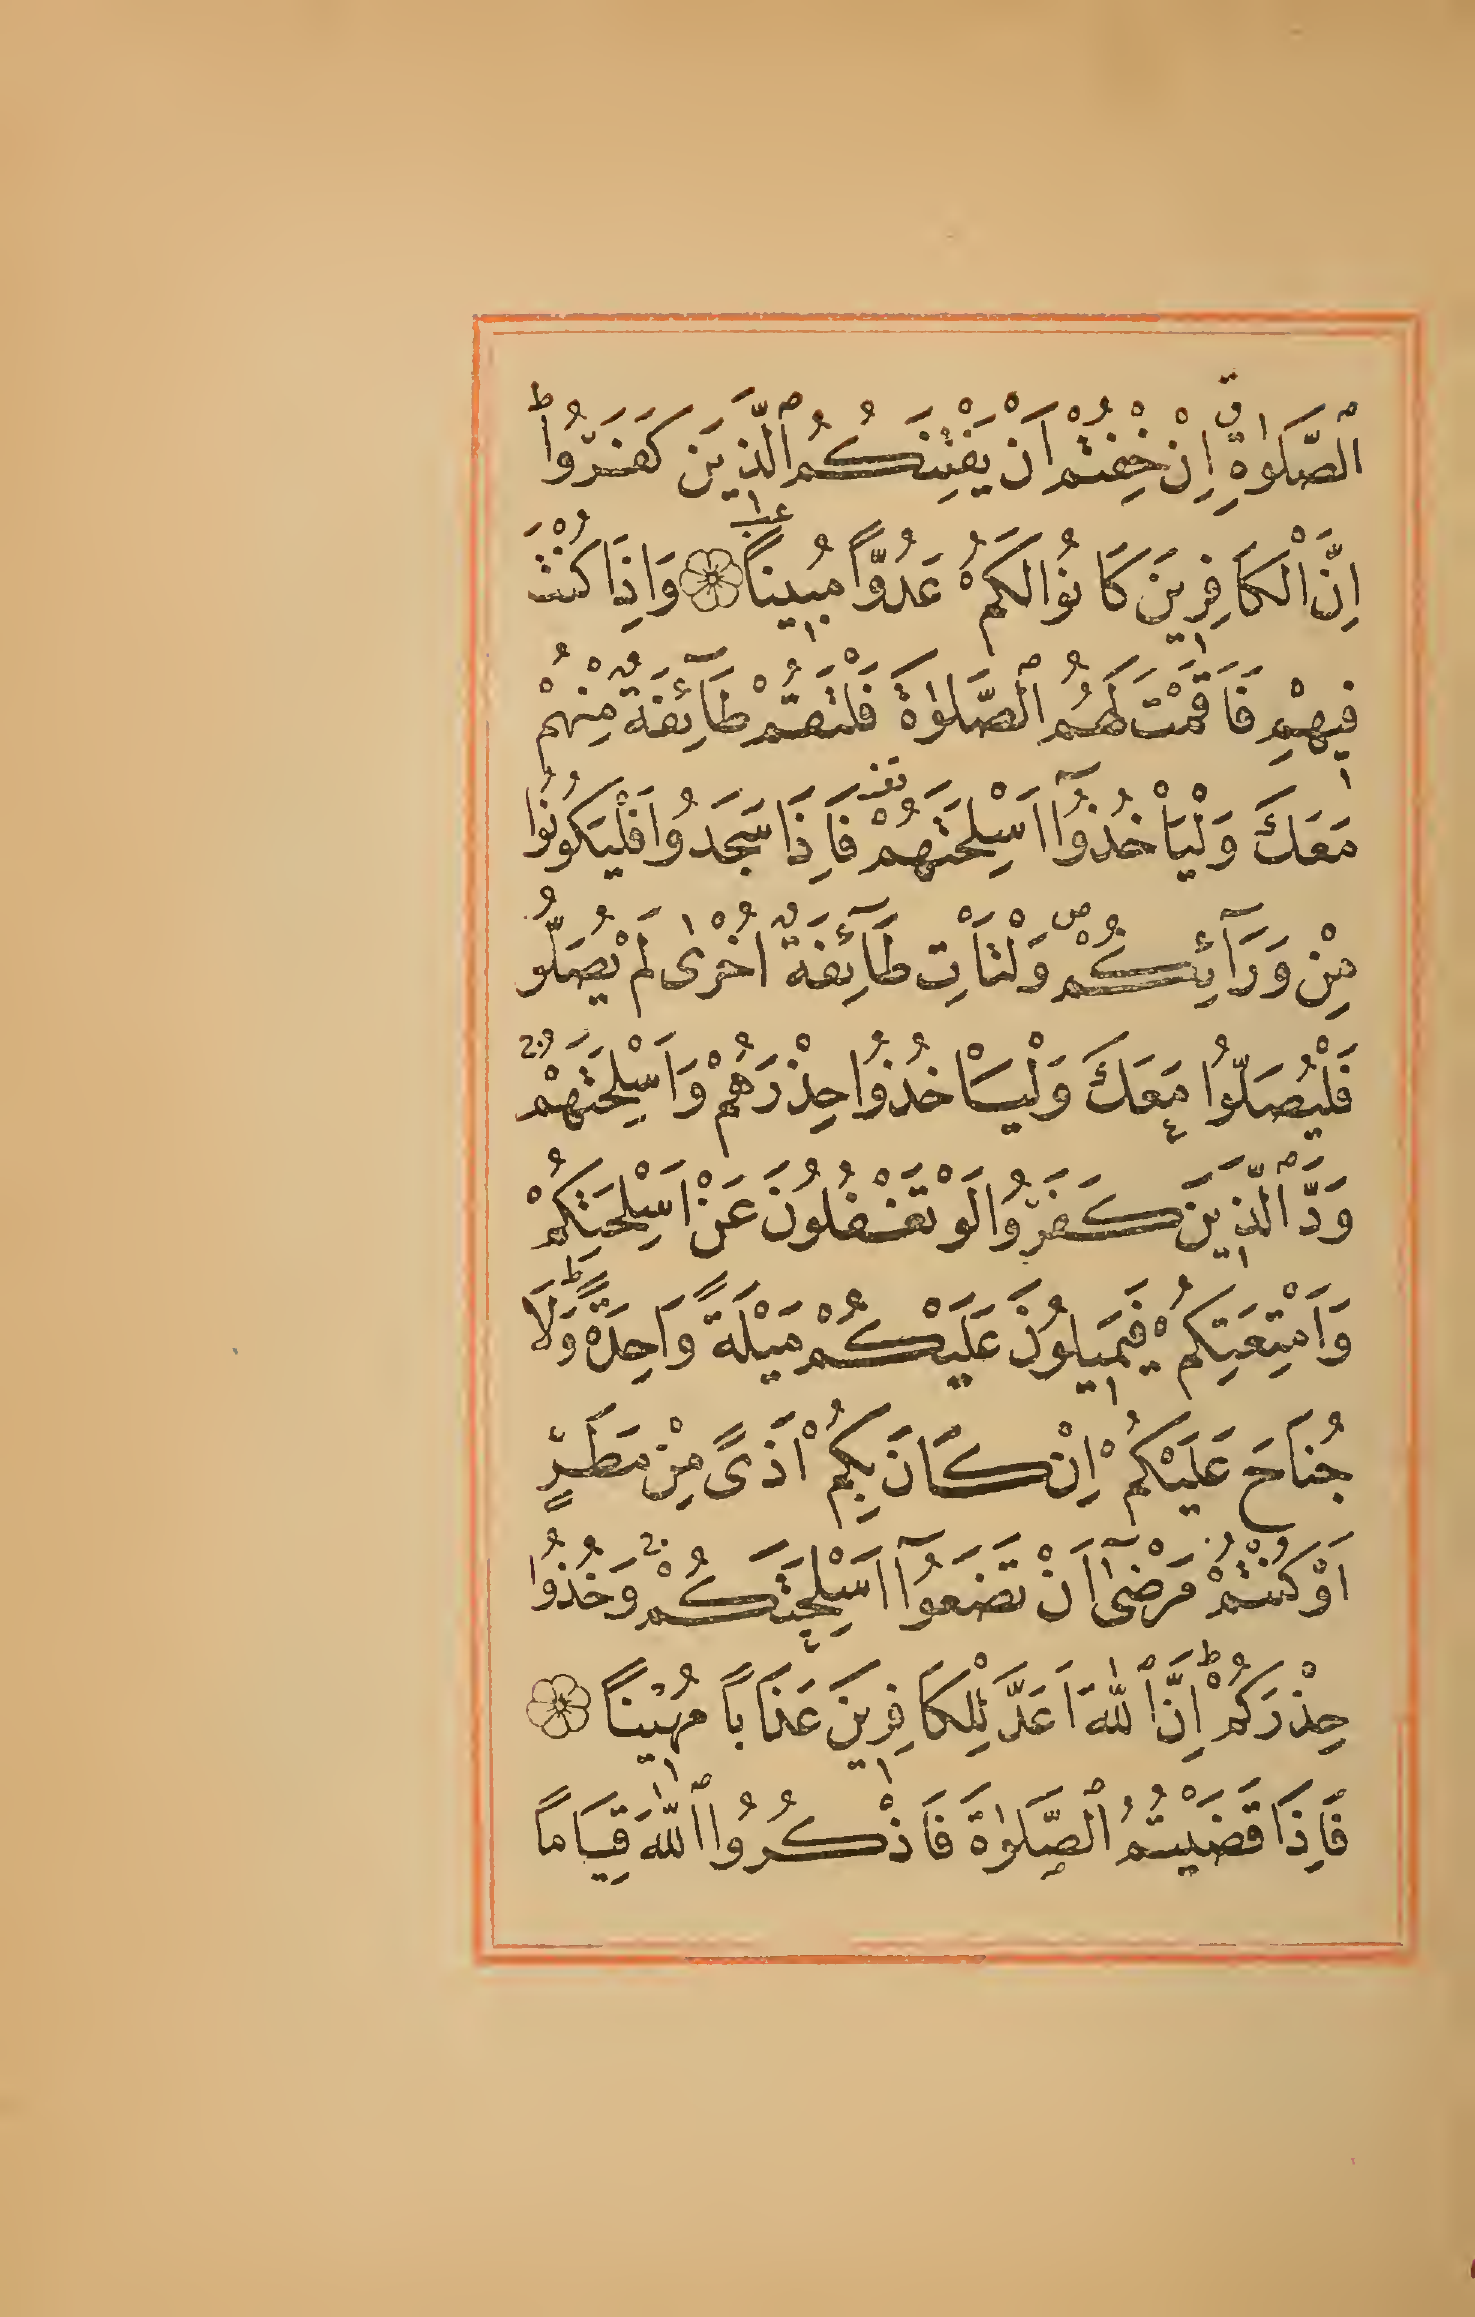 ٱلصَّلٰوةِ ق اِنْ خِفْتُمْ اَنْ يَفْتِنَكُمُ ٱلَّذِينَ كَفَرُوا ط
اِنَّ ٱلْكَافِرِينَ كَانُوا لَكُمْ عَدُوًّا مُبِيناً ۝ وَاِذَا كُنْتَ
فِيهِمْ فَاَقَمْتَ لَهُمُ ٱلصَّلٰوةَ فَلْتَقُمْ طَآئِفَةٌ مِنْهُمْ
مَعَكَ وَلْيَأْخُذُوٓا اَسْلِحَتَهُمْ فَاِذَا سَجَدُوا فَلْيَكُونُوا
مِنْ وَرَآئِكُمْ ص وَلْتَأْتِ طَآئِفَةٌ اُخْرٰى لَمْ يُصَلُّوا
فَلْيُصَلُّوا مَعَكَ وَلْيَأْخُذُوا حِذْرَهُمْ وَاَسْلِحَتَهُمْ ج
وَدَّ ٱلَّذِينَ كَفَرُوا لَوْ تَغْفُلُونَ عَنْ اَسْلِحَتِكُمْ
وَاَمْتِعَتِكُمْ فَيَمِيلُونَ عَلَيْكُمْ مَيْلَةً وَاحِدَةً ط وَلَا
جُنَاحَ عَلَيْكُمْ اِنْ كَانَ بِكُمْ اَذًى مِنْ مَطَرٍ
اَوْ كُنْتُمْ مَرْضٰٓى اَنْ تَضَعُوٓا اَسْلِحَتَكُمْ ج وَخُذُوا
حِذْرَكُمْ ط اِنَّ ٱللّٰهَ اَعَدَّ لِلْكَافِرِينَ عَذَاباً مُهِيناً ۝
فَاِذَا قَضَيْتُمُ ٱلصَّلٰوةَ فَاذْكُرُوا ٱللّٰهَ قِيَاماً